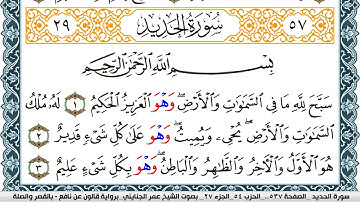 ٢٩ سُورَةُ الحَدِيدِ ٥٧
بِسْمِ اللَّهِ الرَّحْمَٰنِ الرَّحِيمِ
سَبَّحَ لِلَّهِ مَا فِي السَّمَٰوَٰتِ وَالْأَرْضِ وَهْوَ الْعَزِيزُ الْحَكِيمُ ١ لَهُ مُلْكُ
السَّمَٰوَٰتِ وَالْأَرْضِ يُحْيِي وَيُمِيتُ وَهْوَ عَلَىٰ كُلِّ شَيْءٍ قَدِيرٌ ٢
هُوَ الْأَوَّلُ وَالْآخِرُ وَالظَّٰهِرُ وَالْبَاطِنُ وَهْوَ بِكُلِّ شَيْءٍ عَلِيمٌ ٣
سورة الحديد _ الصفحة ٥٣٧ _ الحزب ٥٤ _ الجزء ٢٧ _ بصوت الشيخ عمر الجنايني _ برواية قالون عن نافع - بالقصر والصلة